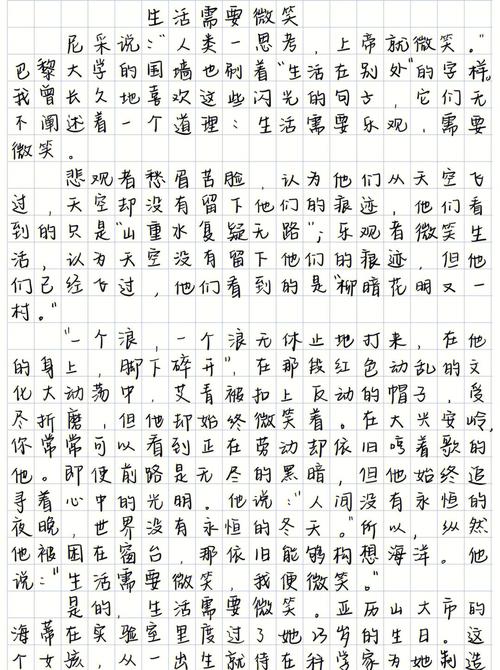 生活需要微笑
尼采说："人类一思考，上帝就微笑。"
巴黎大学的围墙也刷着"生活在别处"的字样
我曾长久地喜欢这些闪光的句子，它们无
不阐述着一个道理：生活需要乐观，需要
微笑。
悲观者愁眉苦脸，认为他们从天空飞
过，天空却没有留下他们的痕迹，他们看
到的只是"山重水复疑无路"；乐观者微笑生
活，认为天空没有留下他们的痕迹，但他
们已经飞过，他们看到的是"柳暗花明又一
村。"
"一个浪，一个浪无休止地打来，在他
的身上，脚下碎开"，在那段红色动乱的文
化大动荡中，艾青被扣上反动的帽子，受
尽折磨，但他却始终微笑着。在大兴安岭，
你常常可以看到正在劳动却依旧哼着歌的
他。即使前路是无尽的黑暗，但他始终追
寻着心中的光明。他说："人间没有永恒的
夜晚，世界没有永恒的冬天。"所以，纵然
他被困在窗台，那依旧能够构想海洋。他
说："生活需要微笑，我便微笑。"
是的，生活需要微笑。亚历山大市的
海蒂在实验室里度过了她13岁的生日。这
个女孩，从一出生就待在科学家为她制造